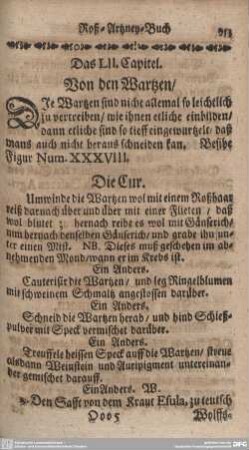 Roß-Artzney-Buch
Das LII. Capitel.
Von den Wartzen/
DJe Wartzen sind nicht allemal so leichtlich
zu vertreiben/ wie ihnen etliche einbilden/
dann etliche sind so tieff eingewurtzelt/ daß
mans auch nicht heraus schneiden kan. Besihe
Figur Num. XXXVIII.
Die Cur.
Umwinde die Wartzen wol mit einem Roßhaar
reiß darnach über und über mit einer Flieten/ daß
wol blutet; hernach reibe es wol mit
nim hernach denselben und grabe ihn
ter einen Mist. NB. Dieses muß geschehen im ab-
nehmenden Mond/wann er im Krebs ist.
Ein Anders.
Cauterisir die Wartzen/ und leg Ringelblumen
mit schweinem Schmaltz angestossen darüber.
Ein Anders.
Schneid die Wartzen herab/ und bind Schieß-
pulver mit Speck vermischet darüber.
Ein Anders.
Treuffele heissen Speck auff die Wartzen/ streue
alsdann Weinstein und Auripigment unterein-
ander gemischet darauff.
Ein Anders. W.
Den Safft von dem Kraut Esula, zu teutsch
Ooo5 Wolffs-